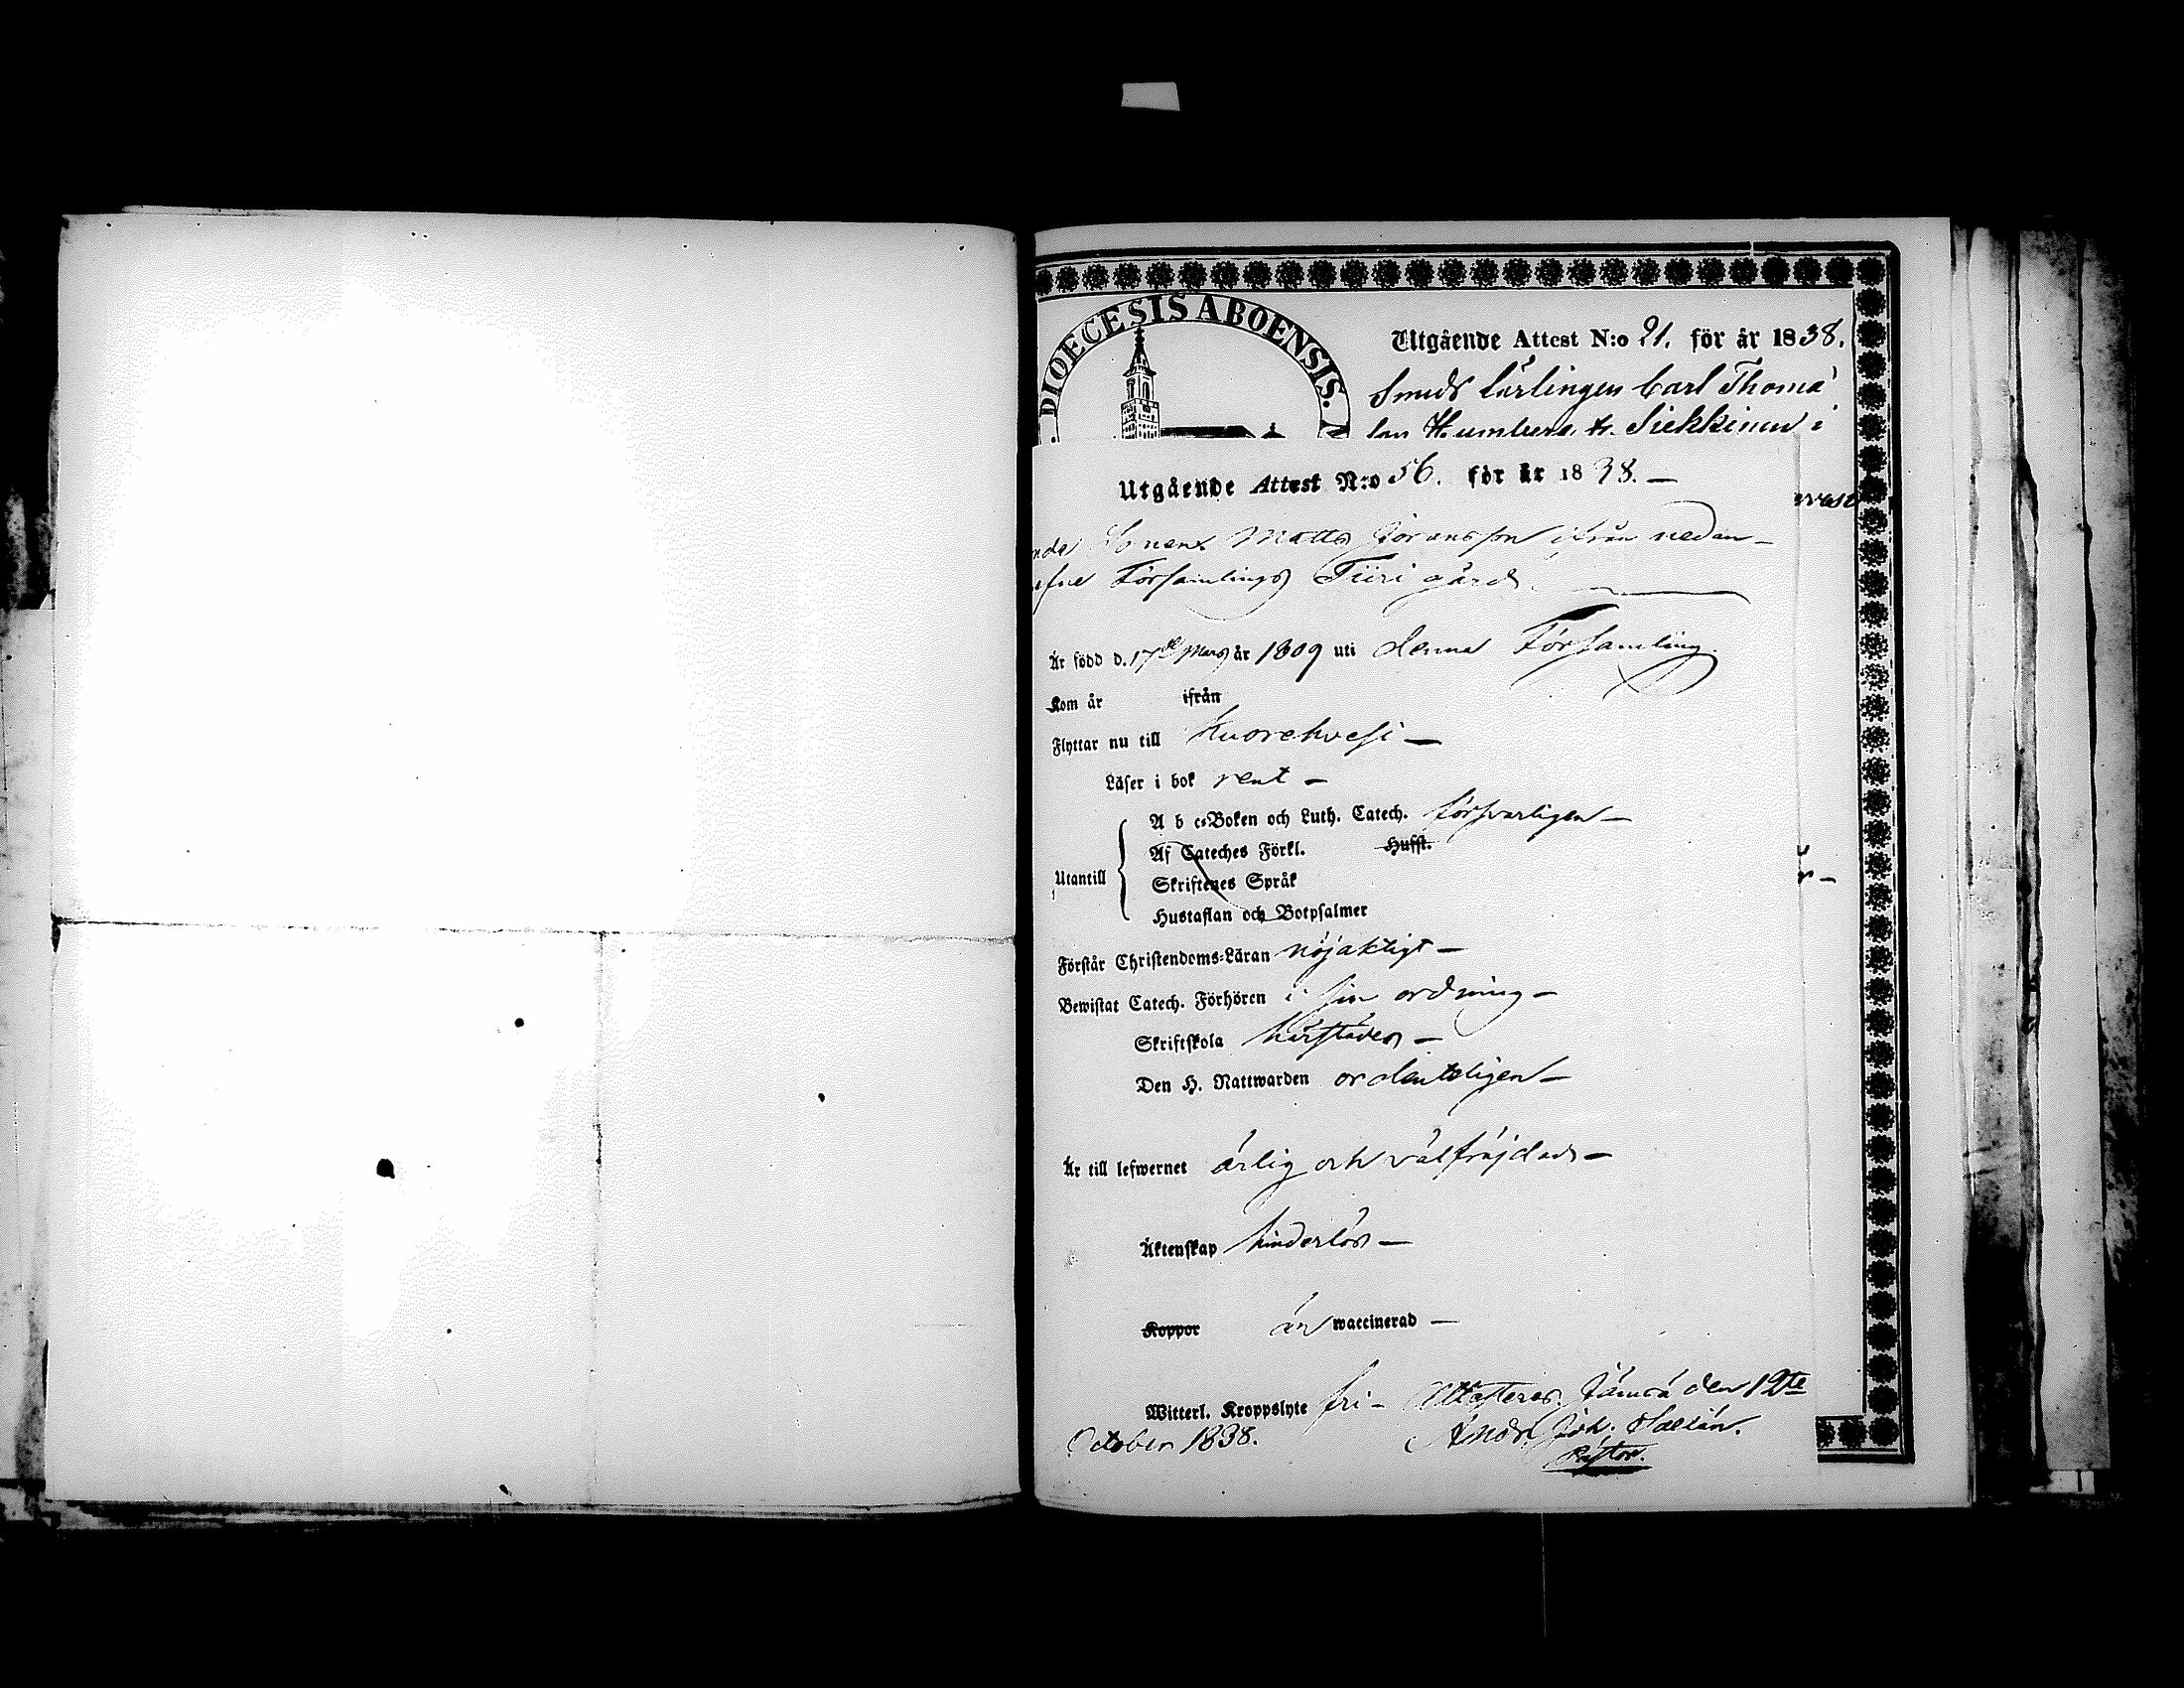 DIOECESIS ABOENSIS.
Utgående Attest N:o 91. för år 1838.
Smeds Lärlingen Carl Thoma
son Humberg fr. Siekkinen i
Utgående Attest N:o 56. för år 1838. —
rvast
nde Sonen Matts Göransson ifrån nedan-
efne Församlings Tiiri gård.
Är född d. 17de Mars år 1809 uti denna Församling.
Kom år ifrån
Flyttar nu till Kuorehvesi —
Läser i bok rent —
A b c-Boken och Luth. Catech. försvarligen —
Af Cateches Förkl. Hufst.
Utantill
Skriftenes Språk
Hustaflan och Botpsalmer
Förstår Christendoms-Läran nöjaktigt —
Bewistat Catech. Förhören i sin ordning —
Skriftskola härstädes —
Den H. Nattwarden ordenteligen —
Är till lefwernet ärlig och välfräjdad —
Äktenskap hinderlös —
Koppor än waccinerad —
Witterl. Kroppslyte fri — Attesteras Jämsä den 12te
October 1838. Joh.
Pastor.